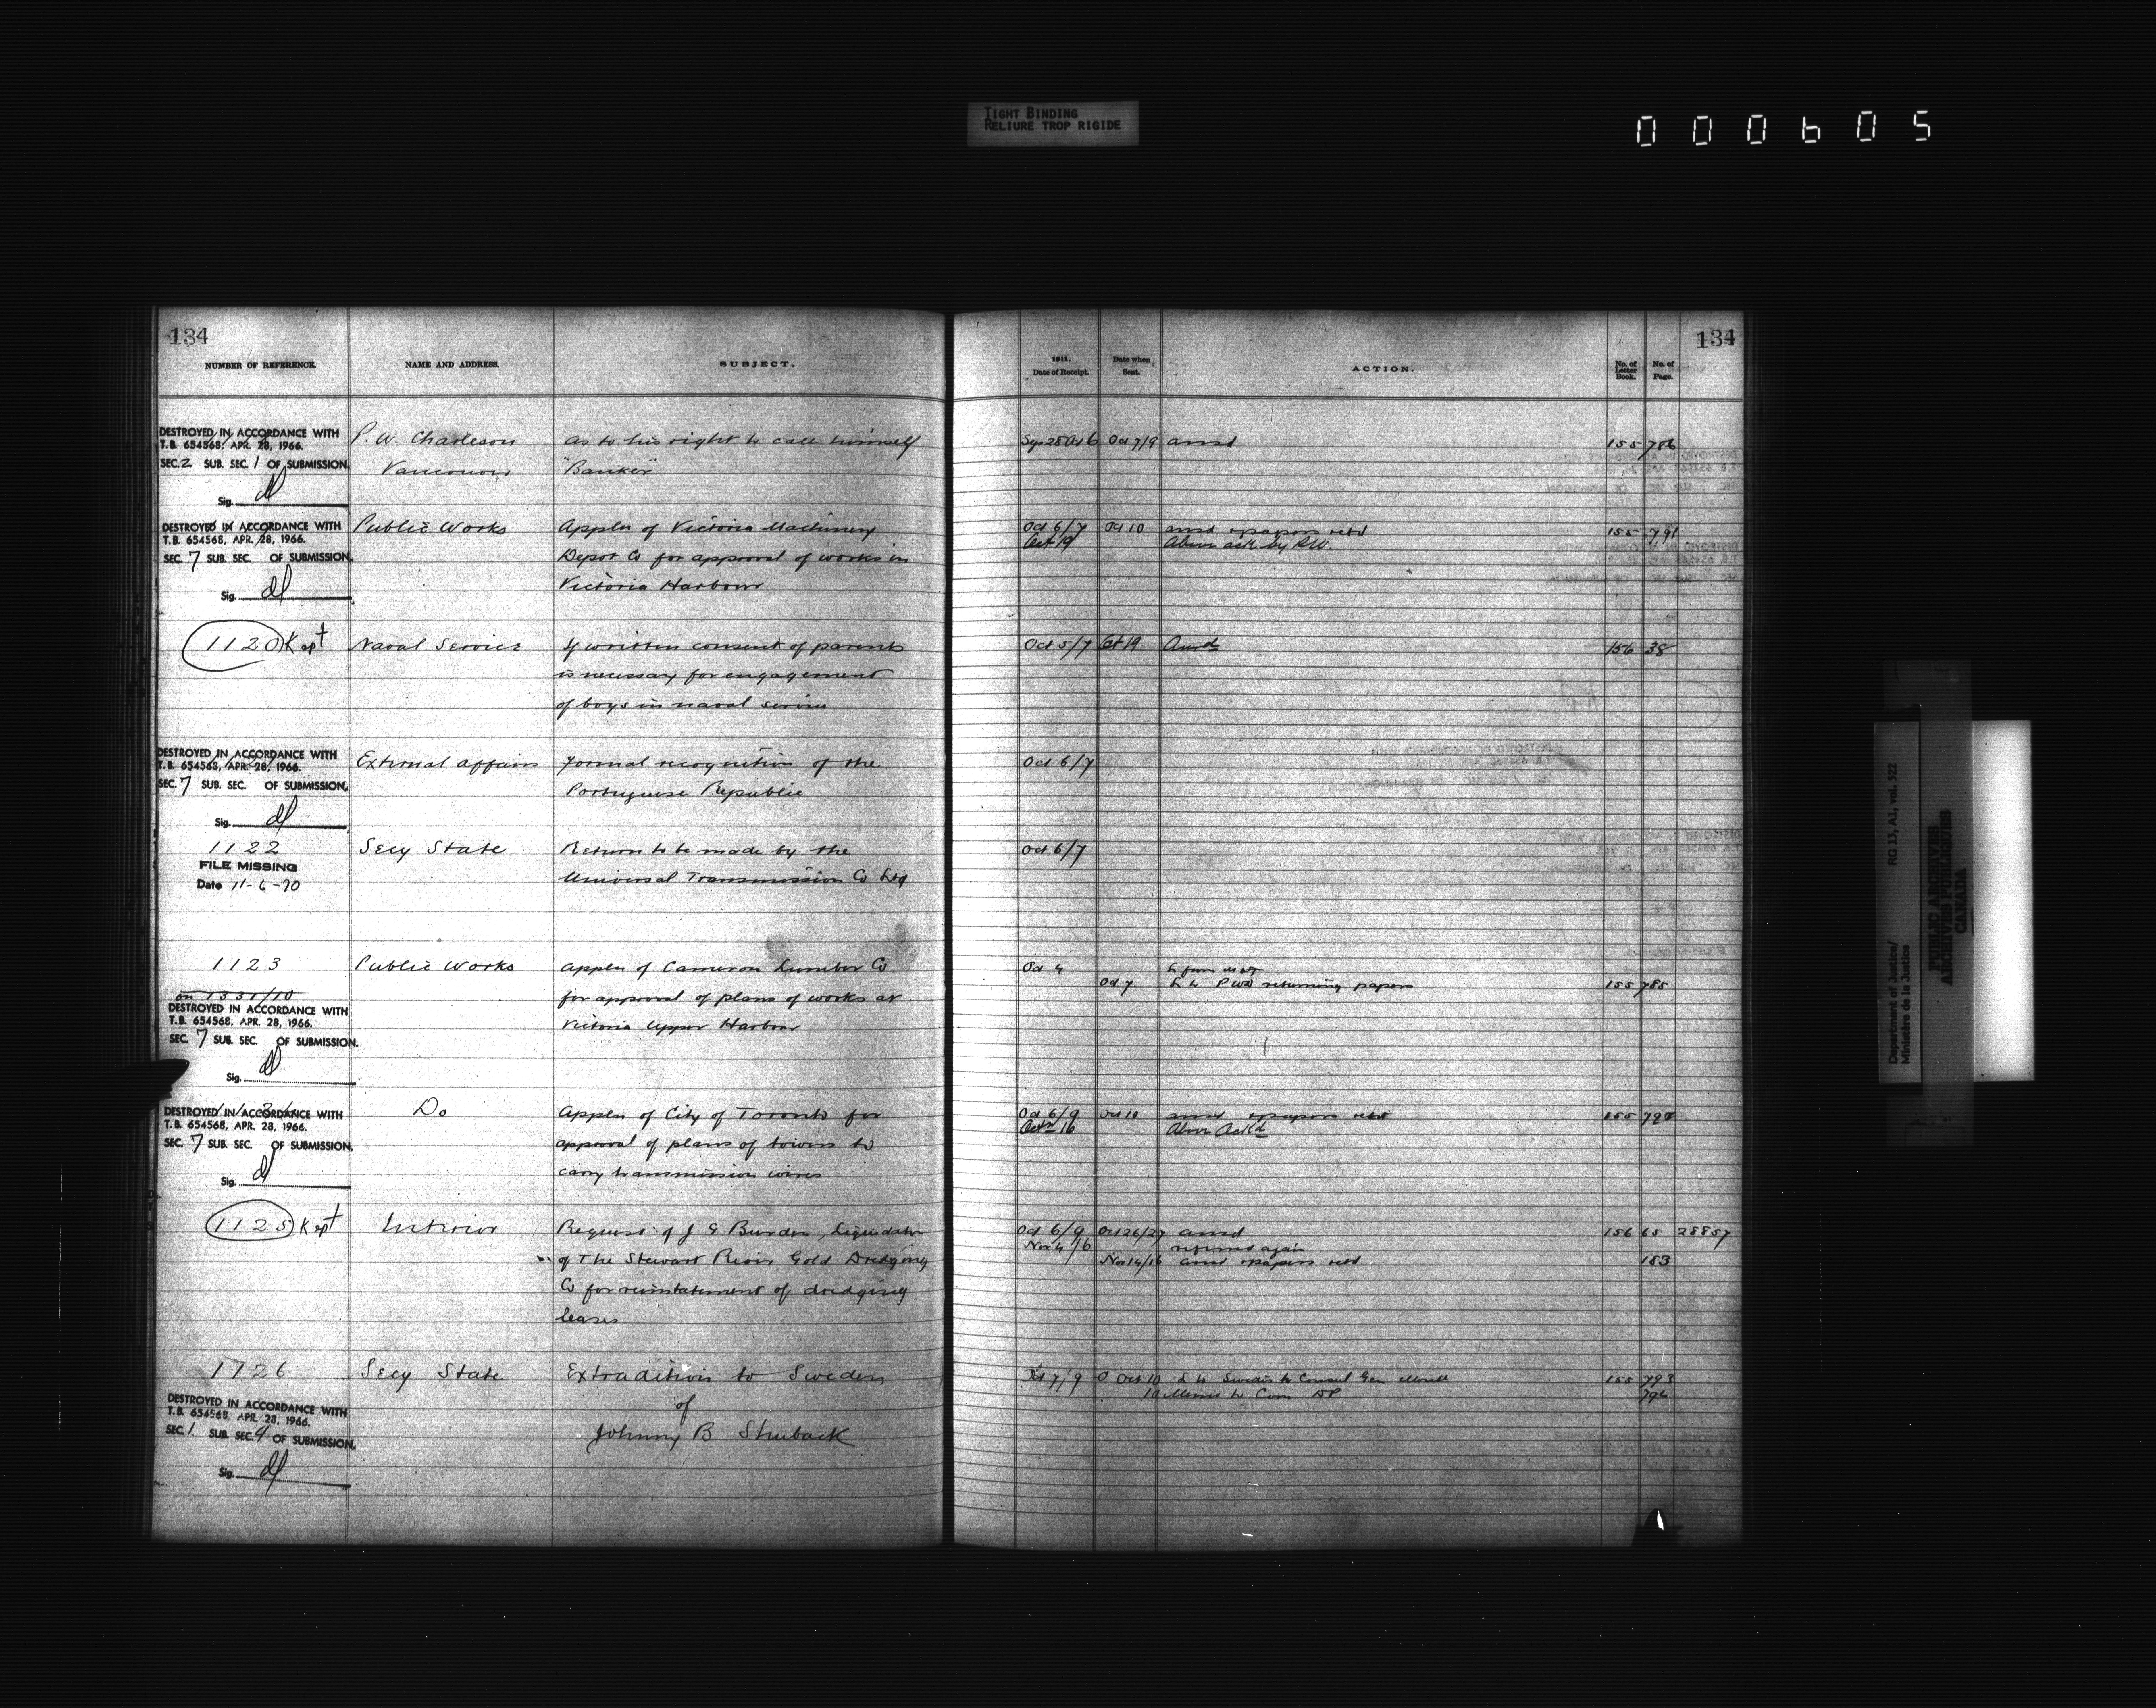 TIGHT BINDING
RELIURE TROP RIGIDE
000605
134
NUMBER OF REFERENCE.
NAME AND ADDRESS.
SUBJECT.
DESTROYED IN ACCORDANCE WITH
T.B. 654568, APR. 28, 1966.
SEC. 2 SUB. SEC. 1 OF SUBMISSION.
Sig.
P. W. Charleson
Vancouver
as to his right to call himself
"Banker"
DESTROYED IN ACCORDANCE WITH
T.B. 654568, APR. 28, 1966.
SEC. 7 SUB. SEC. OF SUBMISSION.
Sig.
Public Works
Appln of Victoria Machinery
Depot Co for approval of works in
Victoria Harbour
1120 Kept
Naval Service
If written consent of parents
is necessary for engagement
of boys in naval service
DESTROYED IN ACCORDANCE WITH
T.B. 654568, APR. 28, 1966.
SEC. 7 SUB. SEC. OF SUBMISSION.
Sig.
External affairs
Formal recognition of the
Portuguese Republic
1122
FILE MISSING
Date 11-6-70
Secy State
Return to be made by the
Universal Transmission Co Ltd
1123
on 1331/10
DESTROYED IN ACCORDANCE WITH
T.B. 654568, APR. 28, 1966.
SEC. 7 SUB. SEC. OF SUBMISSION.
Sig.
Public Works
Appln of Cameron Lumber Co
for approval of plans of works at
Victoria Upper Harbour
DESTROYED IN ACCORDANCE WITH
T.B. 654568, APR. 28, 1966.
SEC. 7 SUB. SEC. OF SUBMISSION.
Sig.
Do
Appln of City of Toronto for
approval of plans of towers to
carry transmission wires
1125 Kept
Interior
Request of J E Burden, Liquidator
of The Stewart River Gold Dredging
Co for reinstatement of dredging
leases
1126
DESTROYED IN ACCORDANCE WITH
T.B. 654568, APR. 28, 1966.
SEC. 1 SUB. SEC. 4 OF SUBMISSION.
Sig.
Secy State
Extradition to Sweden
of
Johnny B
134
1911.
Date of Receipt.
Date when
Sent.
ACTION.
No. of
Letter
Book.
No. of
Page.
Sep 28 Oct 6 Oct 7/9 ansd 155 786
Oct 6/7 Oct 10 ansd & papers retd 155 791
Oct 19 Above ack by P.W.
Oct 5/7 Oct 19 Ansd 156 38
Oct 6/7
Oct 6/7
Oct 4
Oct 7 L to P WD returning papers 155 785
Oct 6/9 Oct 10 ansd & papers retd 155
Oct 16 Above Ackd
Oct 6/9 Oct 26/27 ansd 156 65 28857
Nov 4/6 referred again
Nov 14/16 ansd & papers retd 183
Oct 7/9 Oct 10 L to Swedish Consul Gen 155 793
10 Memo to Com DP 794
Department of Justice/
Ministère de la Justice
RG 13, A1, vol. 522
PUBLIC ARCHIVES
ARCHIVES PUBLIQUES
CANADA